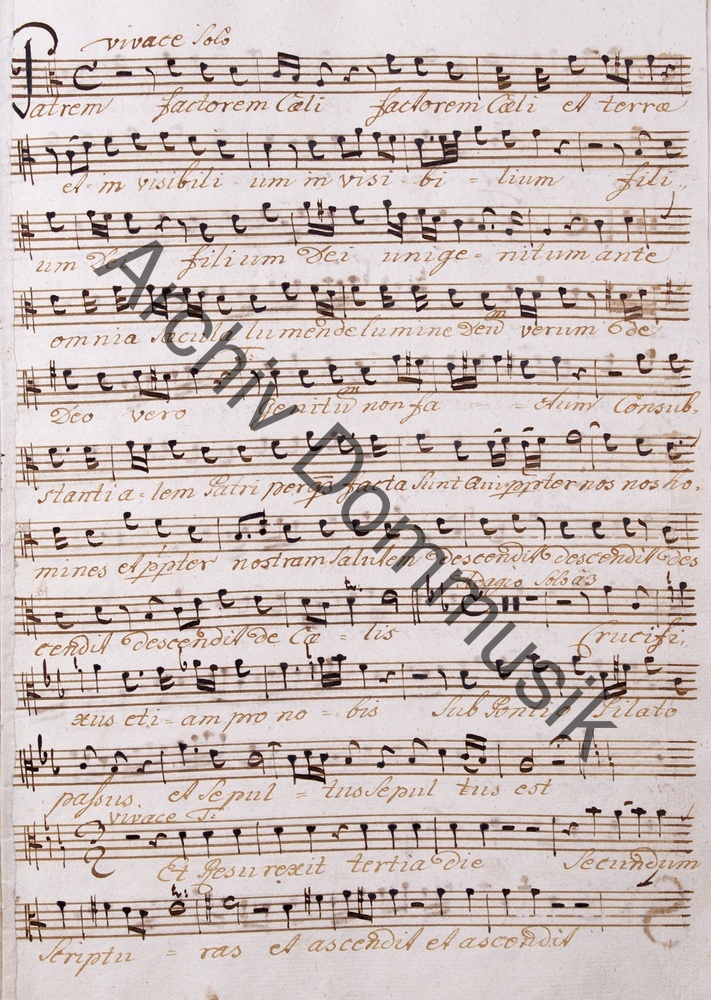 vivace Solo
Patrem factorem Cæli factorem Cæli et terræ
et in visibili um in visi - bi - lium fili
um De filium Dei unige - nitum ante
omnia sæcula lumen de lumine Deū verum de
Deo vero Genitū non fa - - ctum Consub,
stanti a - lem Patri perqȝ facta Sunt qui ppter nos nos ho,
mines et ppter nostram Salutem descendit descendit des
Adagio Solo a 3
cendit descendit de Cæ - lis Crucifi,
xus eti - am pro no - bis Sub Pontio Pilato
passus et Sepul - tus Sepul tus est
vivace T:
Et Resurexit tertia die Secundum
Scriptu - ras et ascendit et ascendit
Archiv Dommusik